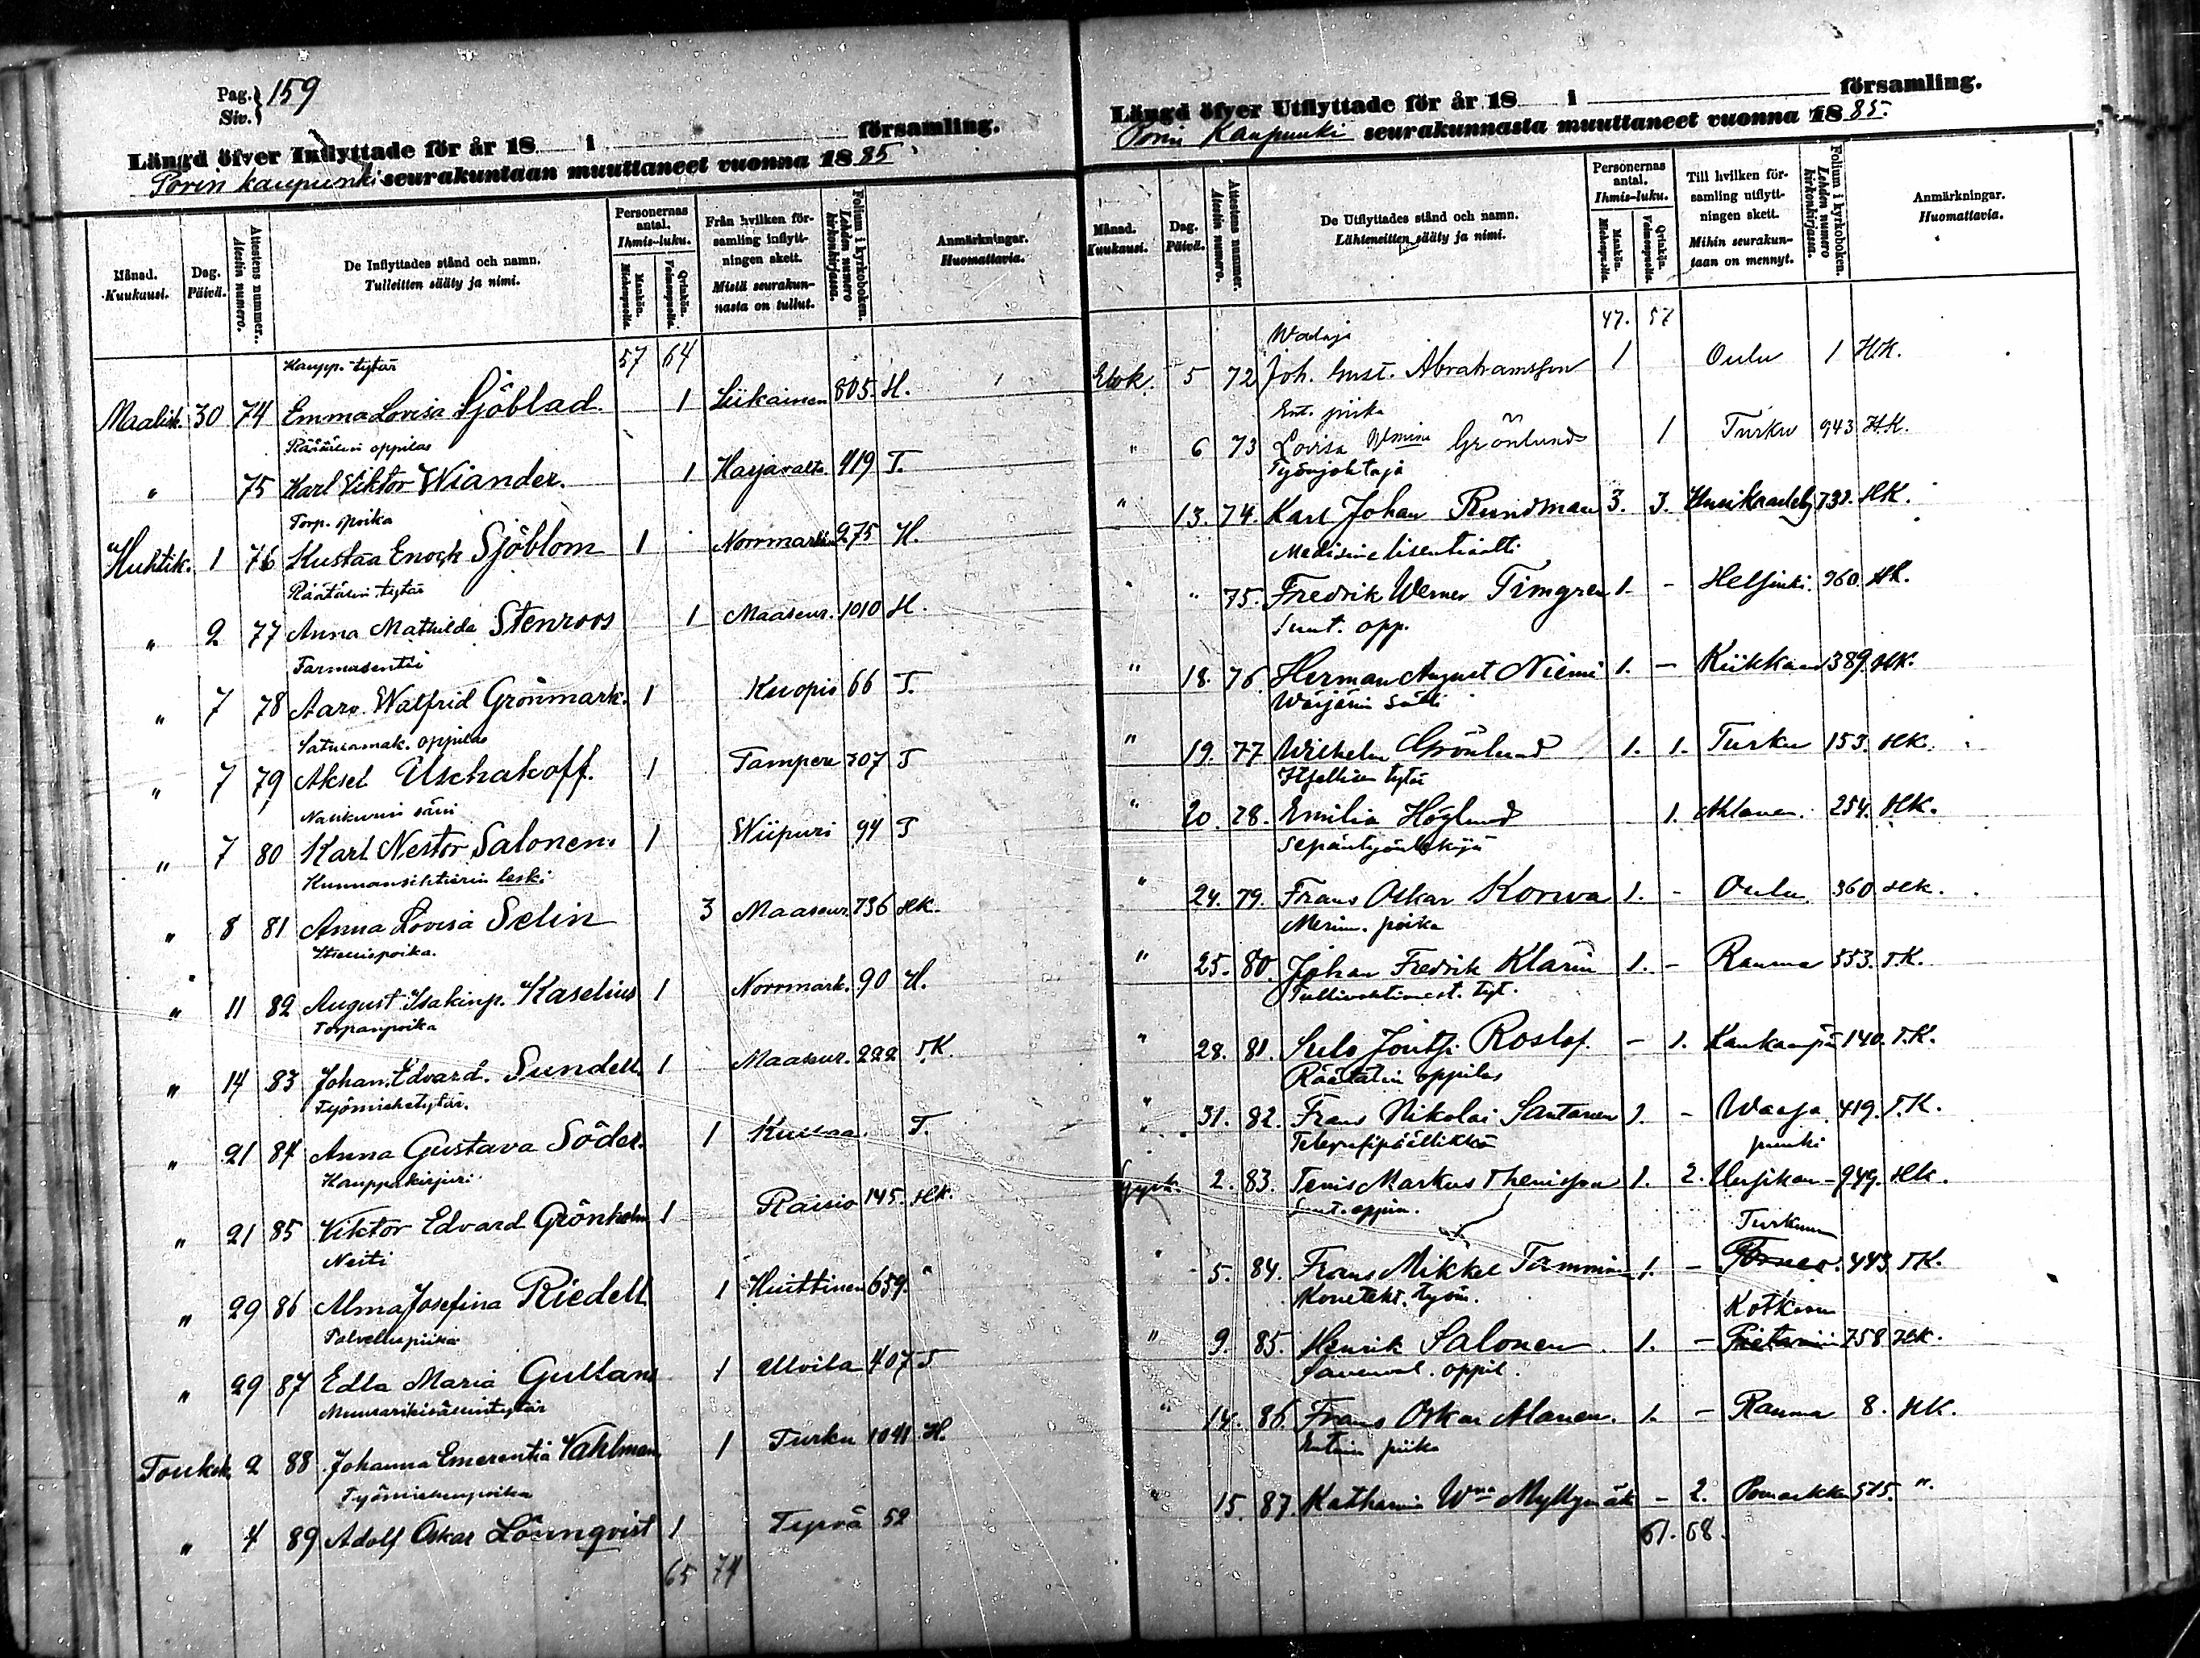 Pag. 159
Siv.
Längd öfver Inflyttade för år 18 i församling.
Porin kaupunki seurakuntaan muuttaneet vuonna 1885
Månad. Kuukausi.
Dag. Päivä.
Attestens nummer. Atestin numero.
De Inflyttades stånd och namn. Tulleitten sääty ja nimi.
Personernas antal. Ihmis-luku.
Mankön. Miehenpuolia.
Qvinkön. Vaimonpuolia.
Från hvilken församling inflyttningen skett. Mistä seurakunnasta on tullut.
Folium i kyrkoboken. Lehden numero kirkonkirjassa.
Anmärkningar. Huomattavia.
Kaupp. tytär 57 64
Maalisk. 30 74 Emma Lovisa Sjöblad. 1 Siikainen 805. H.
Räätälin oppilas
" 75 Karl Viktor Wiander. 1 Harjavalta 419 T.
Torp. poika
Huhtik. 1 76 Kustaa Enock Sjöblom 1 Norrmark 275 H.
Räätälin tytär
" 2 77 Anna Mathilda Stenroos 1 Maaseur. 1010 H.
Farmasentti
" 7 78 Aarv. Walfrid Grönmark. 1 Kuopio 66 T.
Satulamak. oppilas
" 7 79 Aksel Uschakoff. 1 Tampere 307 T
Nahkurin sälli
" 7 80 Karl Nestor Salonen. 1 Wiipuri 94 T
Kunnansihtierin leski
" 8 81 Anna Lovisa Selin 3 Maaseur. 736 HK.
" 11 82 August Isakinp. Kaselius 1 Norrmark. 90 H.
Torpanpoika
" 14 83 Johan Edvard. Sundell 1 Maaseur. 222 T.K.
Työmiehetytär.
" 21 84 Anna Gustava Söder. 1 T.
Kauppakirjuri
" 21 85 Viktor Edvard Grönholm 1 Raisio 145. HK.
Neiti
" 29 86 Alma Josefina Riedell 1 Huittinen 659. "
Palveluspiika
" 29 87 Edla Maria Gullans 1 Ullvila 407 T
Muurarikisällintytär
Toukok. 2 88 Johanna Emerentia Vahlman 1 Turku 1041 H.
Työmiehenpoika
" 4 89 Adolf Oskar Lönnqvist 1 Tyrvä 52
65 74
Längd öfver Utflyttade för år 18 i församling.
Porin Kaupunki seurakunnasta muuttaneet vuonna 1885.
Månad. Kuukausi.
Dag. Päivä.
Attestens nummer. Atestin numero.
De Utflyttades stånd och namn. Lähteneitten sääty ja nimi.
Personernas antal. Ihmis-luku.
Mankön. Miehenpuolia.
Qvinkön. Vaimonpuolia.
Till hvilken församling utflyttningen skett. Mihin seurakuntaan on mennyt.
Folium i kyrkoboken. Lehden numero kirkonkirjassa.
Anmärkningar. Huomattavia.
47. 57
Elok. 5 72 Joh. Gust. Abrahamsson 1 Oulu 1 H.K.
Ent. piika
" 6 73 Lovisa Wlmina Grönlund 1 Turku 943 H.K.
Työnjohtaja
" 13. 74. Karl Johan Rundman 3. 3. 731. HK.
Medisine lisentiaatti
" " 75. Fredrik Werner Timgren 1. - Helsinki. 960. HK.
Suut. opp.
" 18. 76. Herman August Niemi 1. - Kiikkaan 389. HK.
Wärjärin sälli
" 19. 77 Wilhelm Grönlund 1. 1. Turku 153. HK.
Itsellisen tytär
" 20. 78. Emilia Höglund 1. Ahlainen. 254. HK.
Sepäntyöntekijä
" 24. 79. Frans Oskar Korwa 1. - Oulu. 360. HK.
Merim. poika
" 25. 80. Johan Fredrik Klarin 1. - Rauma 553. T.K.
" 28. 81. Roslof. - 1. Kankaanpää 140. T.K.
Räätälin oppilas
" 31. 82. Frans Nikolai Santanen 1. - Waasa 419. T.K.
Telegrafipäällikkö
Syysk. 2. 83. Tenis Markus Thenisson 1. 2. Uusikau-punki 949. HK.
Suut. oppil.
" 5. 84. Frans Mikkel Tamminen 1. - Turkuun 443. T.K.
Koneteht. työm.
" 9. 85. Henrik Salonen. 1. - Kotkaan Pietariin 758 HK.
oppil.
" 14. 86. Frans Oskar Alanen. 1. - Rauma 8. HK.
Entinen piika
" 15. 87. Katharina Wna Myllymäk - 2. Pomarkku 515. "
61. 68.